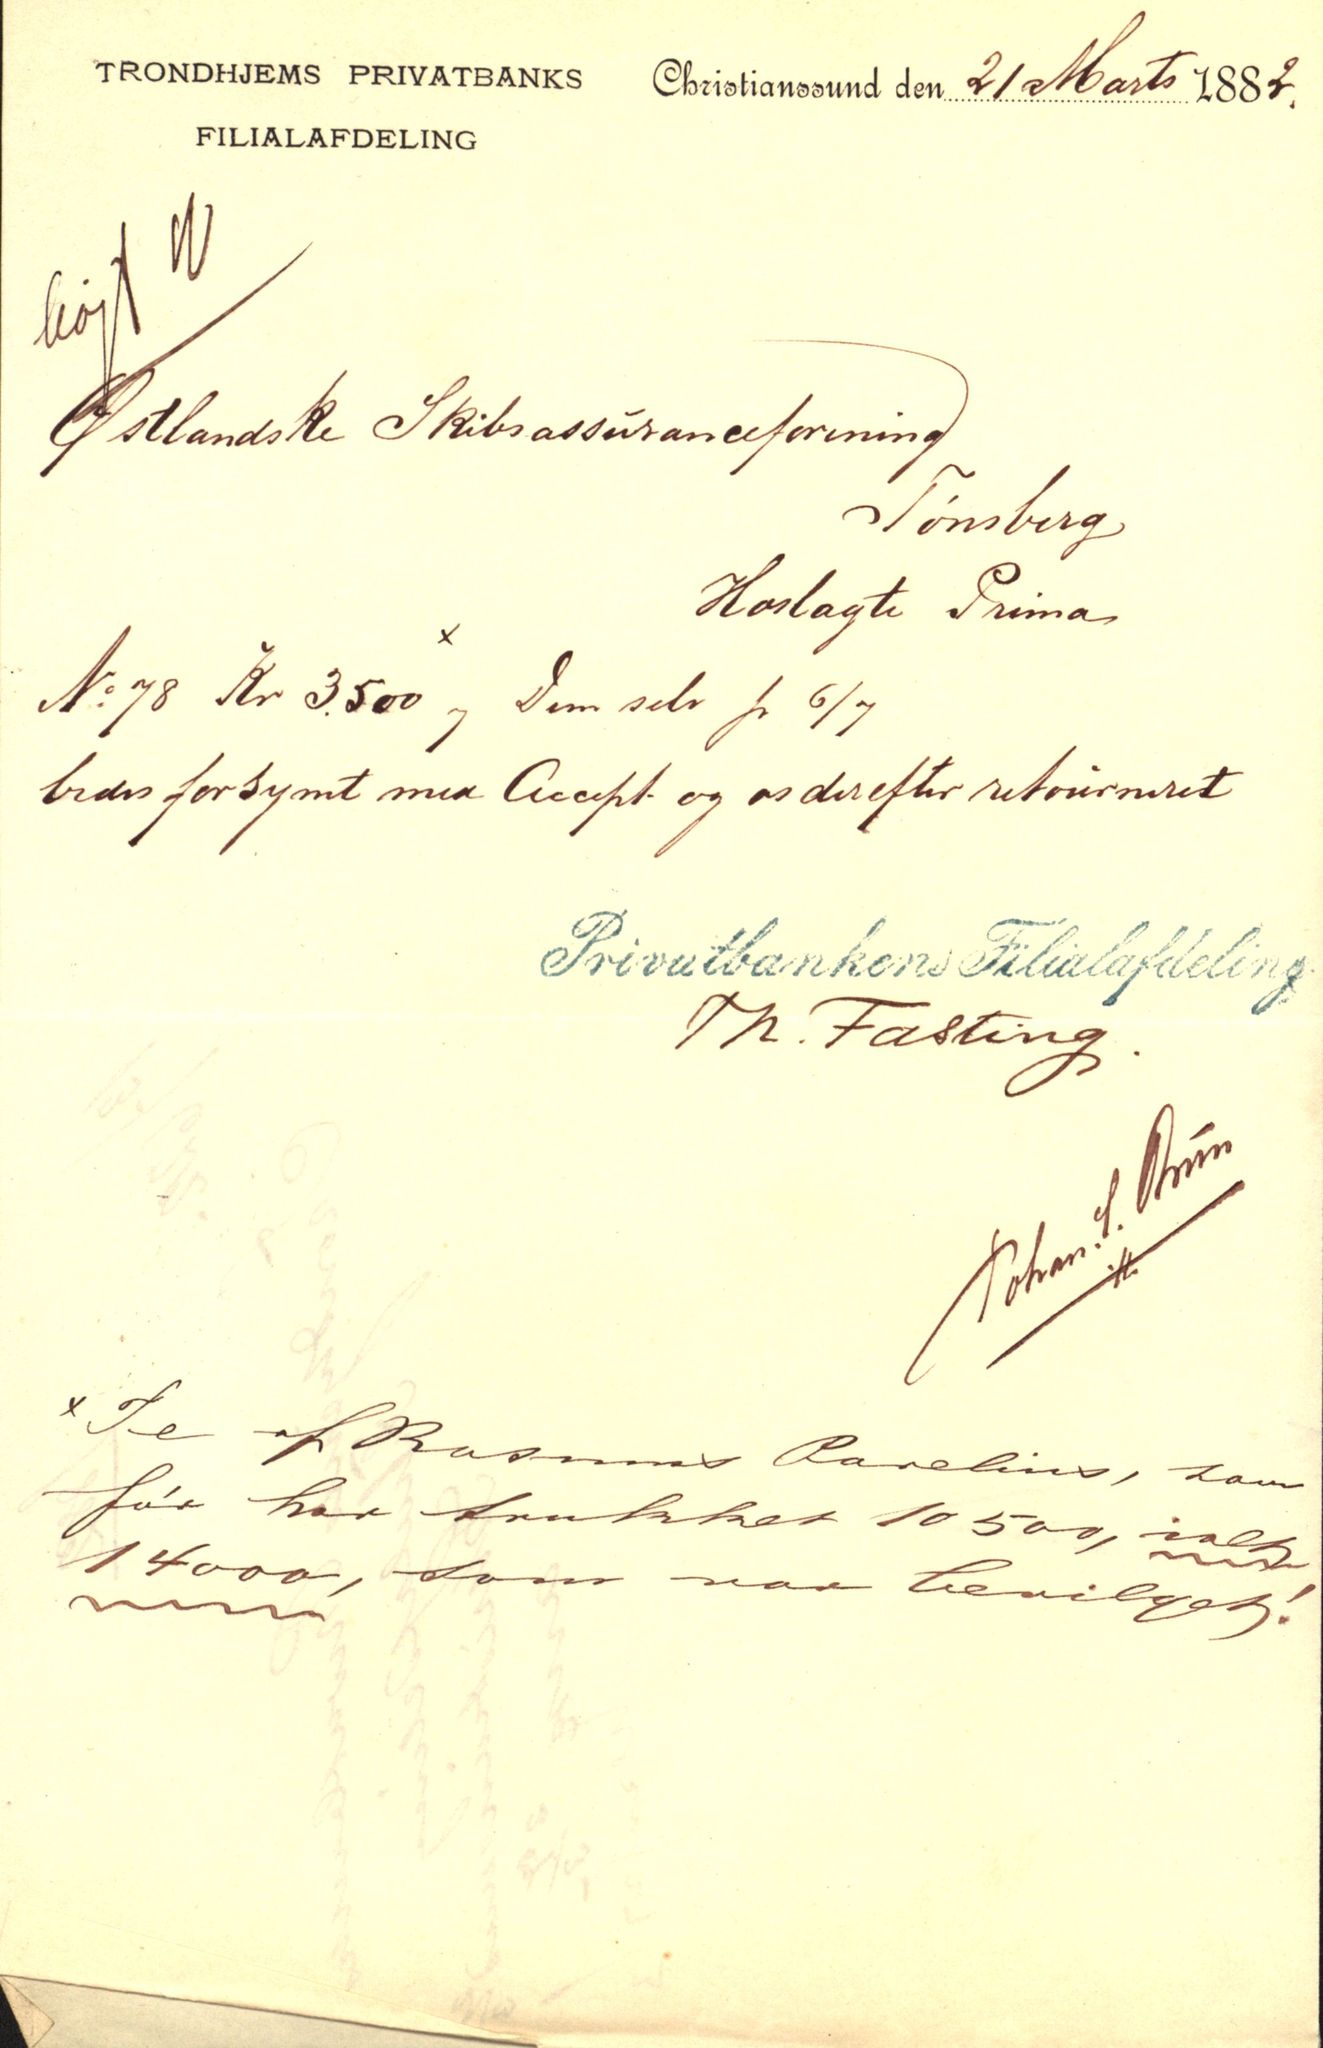 TRONDHJEMS PRIVATBANKS
FILIALAFDELING
Christianssund den 21 Marts 1882.
Østlandske Skibsassüranceforening
Tönsberg
Hoslagte Prima
No. 78 Kr 3.500 x / Dem selv pr 6/7
bedes forsynt med Accept og os derefter retoürneret
Privatbankens Filialafdeling.
Th. Fasting.
Johan. S. Brün
x Te af Rasmus Parelius, som
för har trukket 10 500, ialt
14000, som var bevilget!